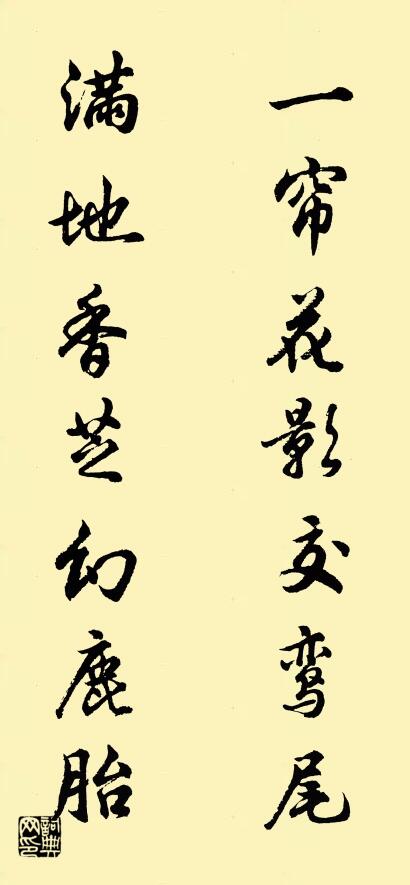 一帘花影交鸾尾
满地香芝幻鹿胎
词典网印